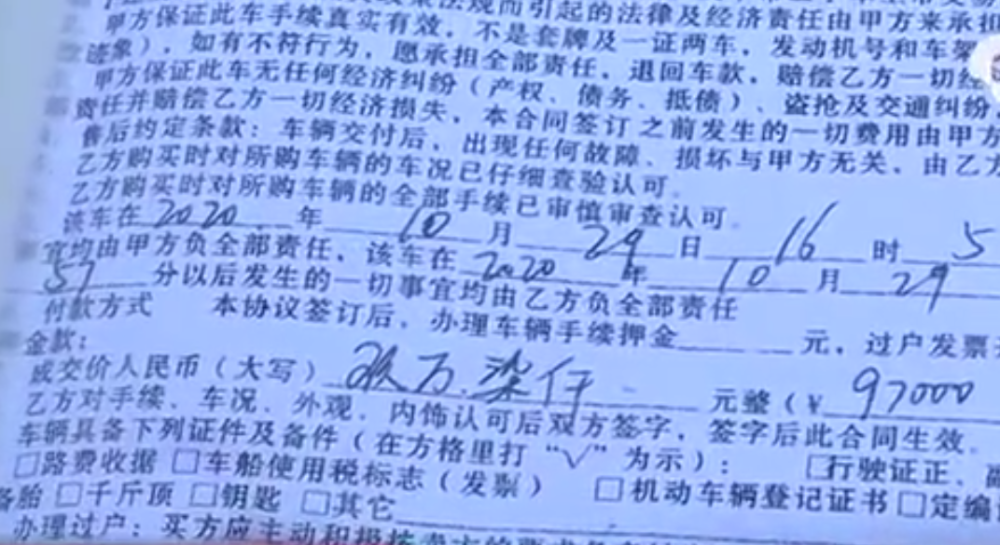 法规而引起的法律及经济责任由甲方来承担
甲方保证此车手续真实有效，不是套牌及一证两车，发动机号和车架
迹象），如有不符行为，愿承担全部责任，退回车款，赔偿乙方一切经
甲方保证此车无任何经济纠纷（产权、债务、抵债）、盗抢及交通纠纷
责任并赔偿乙方一切经济损失，本合同签订之前发生的一切费用由甲方
售后约定条款：车辆交付后，出现任何故障、损坏与甲方无关，由乙方
乙方购买时对所购车辆的车况已仔细查验认可。
乙方购买时对所购车辆的全部手续已审慎审查认可。
该车在2020年10月29日16时5
宜均由甲方负全部责任，该车在2020年10月29
57分以后发生的一切事宜均由乙方负全部责任
付款方式 本协议签订后，办理车辆手续押金 元，过户发票
金款：
成交价人民币（大写）玖万柒仟 元整（¥ 97000
乙方对手续、车况、外观、内饰认可后双方签字，签字后此合同生效。
车辆具备下列证件及备件（在方格里打“√”为示）：□行驶证正、副
□路费收据 □车船使用税标志（发票） □机动车辆登记证书 □定编
备胎 □千斤顶 □钥匙 □其它
办理过户：买方应主动和